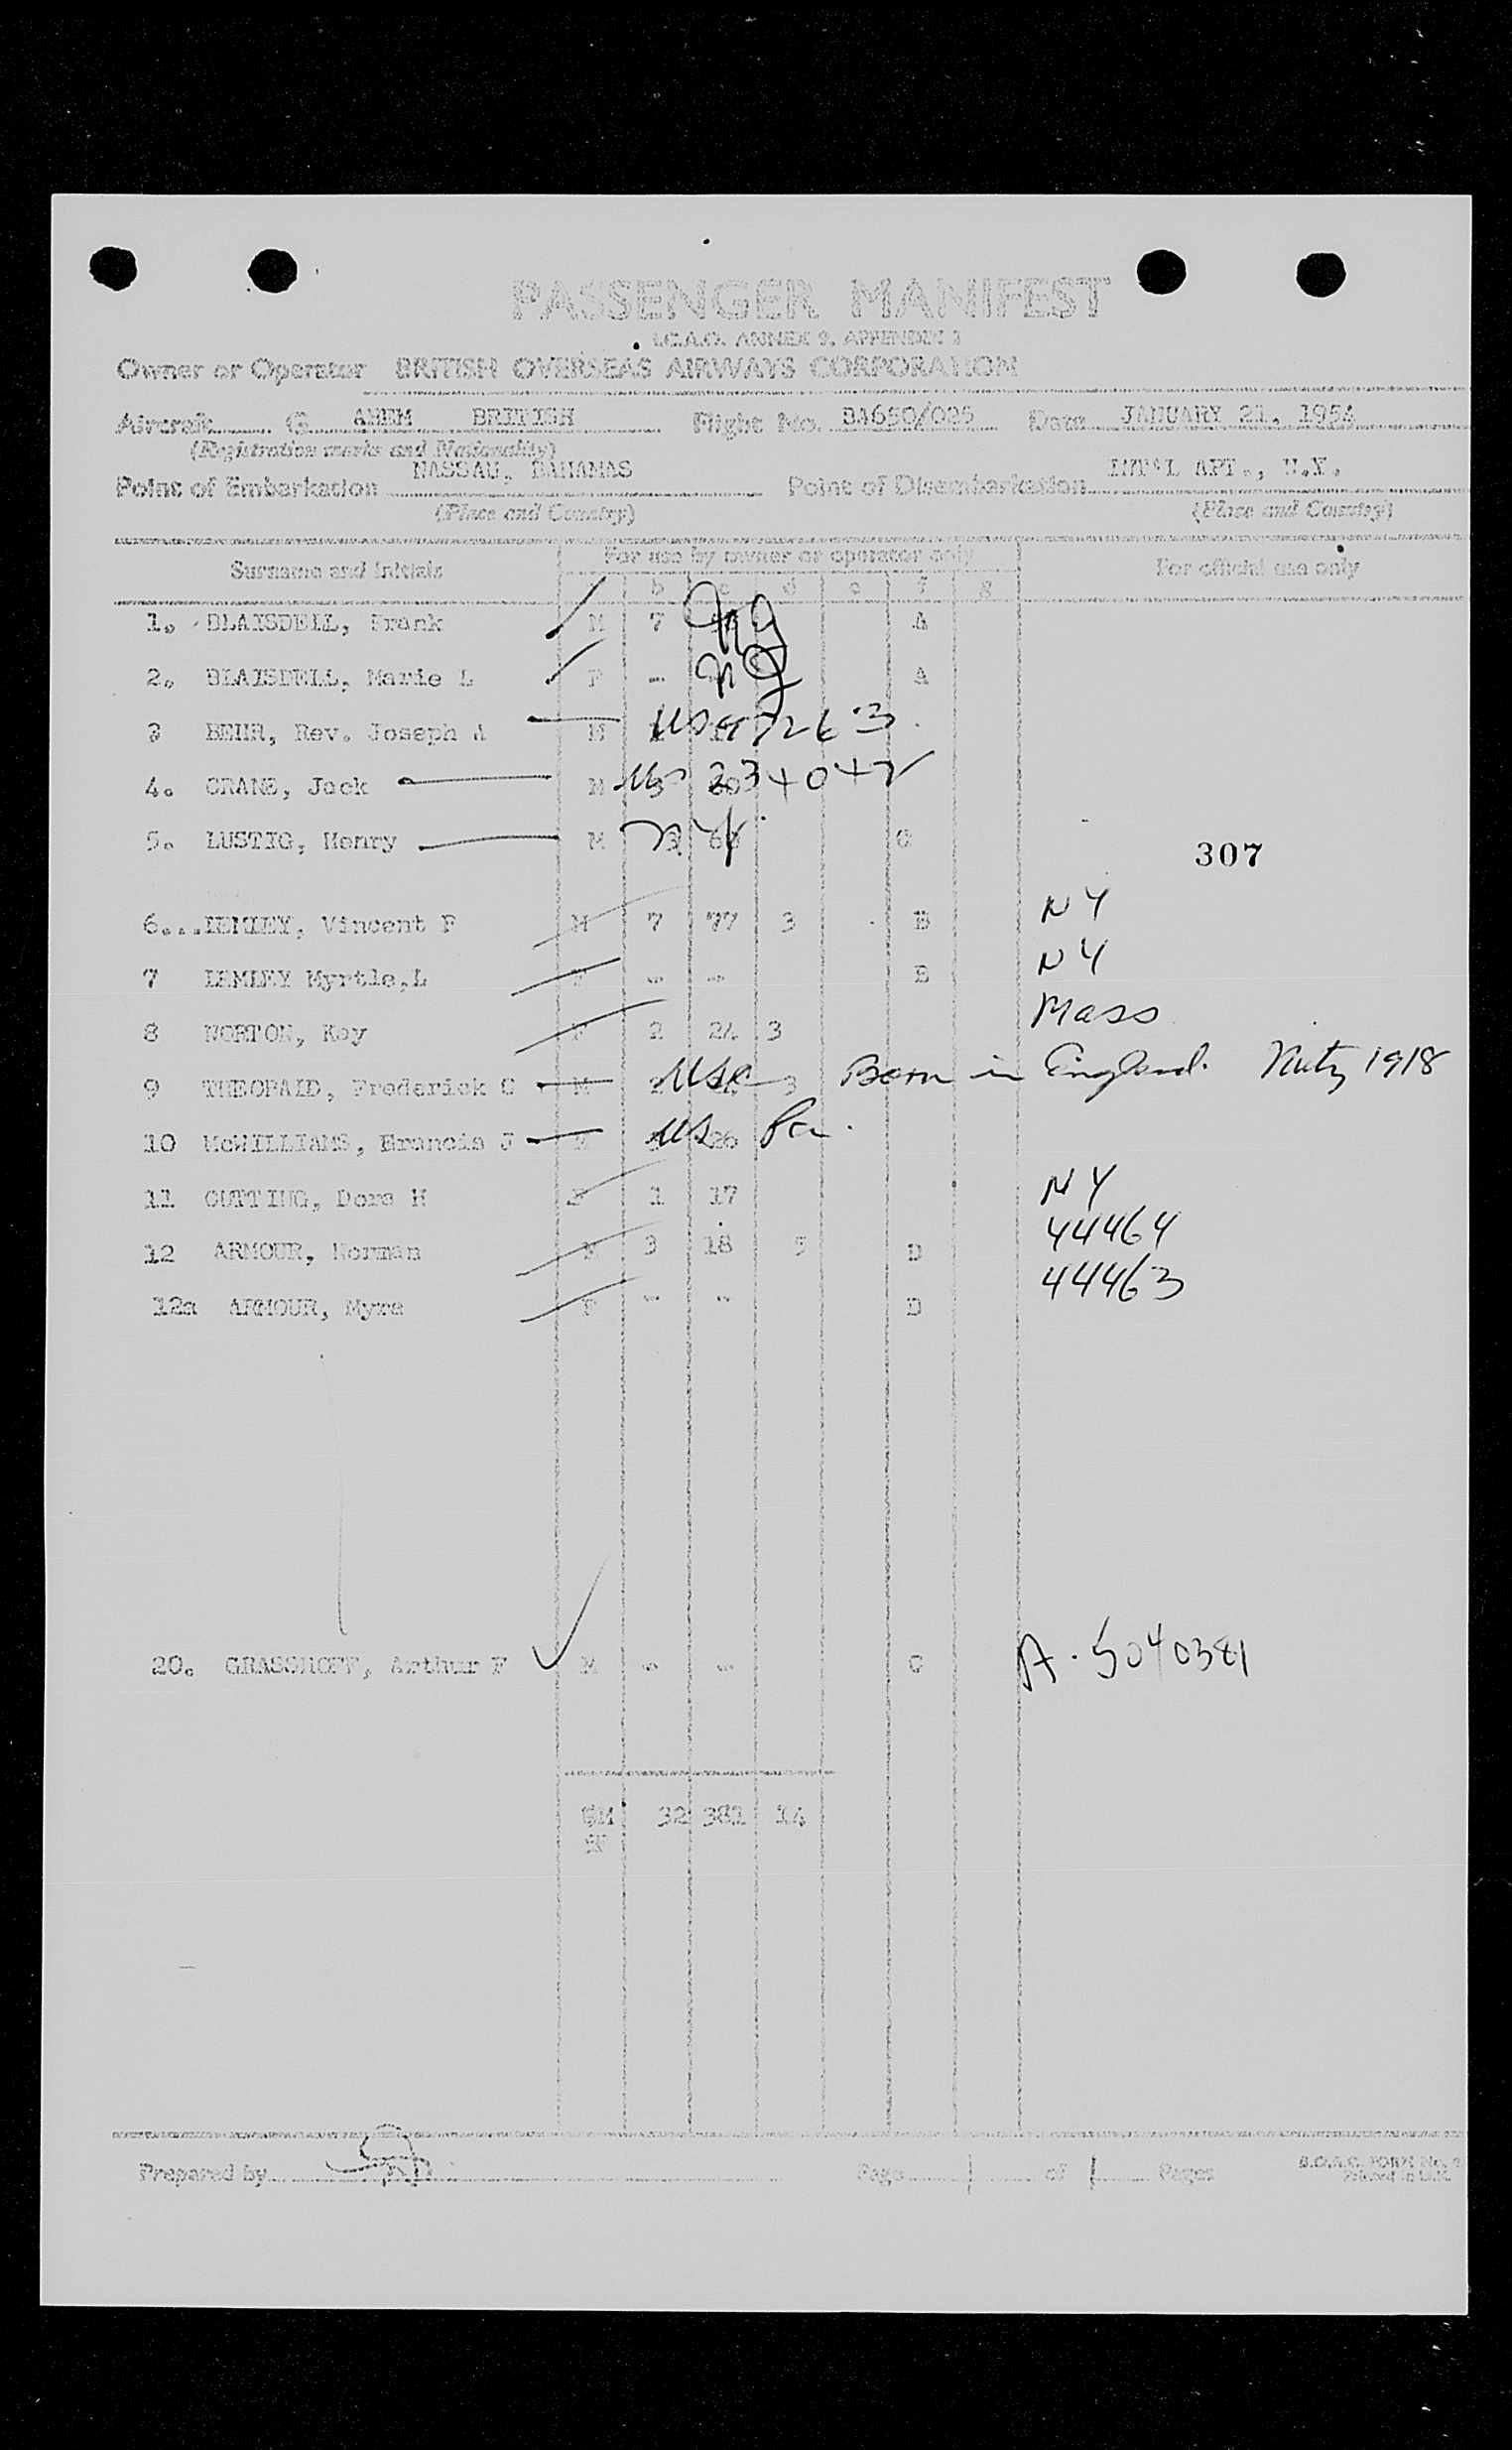 PASSENGER MANIFEST
I.C.A.O. ANNEX 9, APPENDIX 3
Owner or Operator BRITISH OVERSEAS AIRWAYS CORPORATION
Aircraft G AHEM BRITISH Flight No. BA650/025 Date JANUARY 21, 1954
(Registration marks and Nationality)
Point of Embarkation NASSAU, BAHAMAS Point of Disembarkation INT'L APT., N.Y.
(Place and Country) (Place and Country)
Surname and Initials For use by owner or operator only For official use only
b c d e f g
1. BLAISDELL, Frank M 7 NY A
2. BLAISDELL, Marie L F - NY A
3 BEHR, Rev. Joseph A M
4. CRANE, Jack M
5. LUSTIG, Henry M NY C
307
6... LEMLEY, Vincent F M 7 77 3 B NY
7 LEMLEY Myrtle,L F - - B NY
8 NORTON, Kay F 2 24 3 Mass
9 THEOBALD, Frederick C M 2 USC 3 Born in England. Natz 1918
10 McWILLIAMS, Francis J US 26 Pa.
11 CUTTING, Dora H F 1 17 NY
12 ARMOUR, Norman M 3 18 5 D 44464
12a ARMOUR, Myra F - - D 44463
20. GRASSHOFF, Arthur F M - - C A. 5040381
32 381 14
Prepared by Page 1 of 1 Pages
B.O.A.C. FORM No.
Printed in U.K.